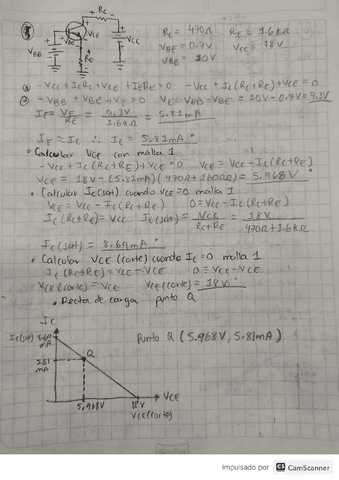 Rc
VCE
VBE
VCC
VBB
RE
Rc = 470Ω RE = 1.6KΩ
VBE = 0.7V VCC = 18V
VBB = 10V
① -Vcc + IcRc + VCE + IERE = 0 -Vcc + Ic(Rc+RE) + VCE = 0
② -VBB + VBE + VE = 0 VE = VBB - VBE = 10V - 0.7V = 9.3V
IE = VE/RE = 9.3V/1.6KΩ = 5.81mA
IE ≈ Ic ∴ Ic = 5.81mA
• Calcular VCE con malla 1
-Vcc + Ic(Rc+RE) + VCE = 0 VCE = Vcc - Ic(Rc+RE)
VCE = 18V - (5.81mA)(470Ω + 1600Ω) = 5.968V
• Calcular Ic(sat) cuando VCE = 0 malla 1
VCE = Vcc - Ic(Rc+RE) 0 = Vcc - Ic(Rc+RE)
Ic(Rc+RE) = Vcc Ic(sat) = Vcc/Rc+RE = 18V/470Ω+1.6KΩ
Ic(sat) = 8.69mA
• Calcular VCE (corte) cuando Ic = 0 malla 1
Ic(Rc+RE) = Vcc - VCE 0 = Vcc - VCE
VCE(corte) = Vcc VCE(corte) = 18V
• Recta de carga punto Q
Ic
Ic(sat) 8.69 mA
Punto Q (5.968V, 5.81mA)
Q
5.81 mA
5.968V 18V VCE
VCE(corte)
Impulsado por CS CamScanner